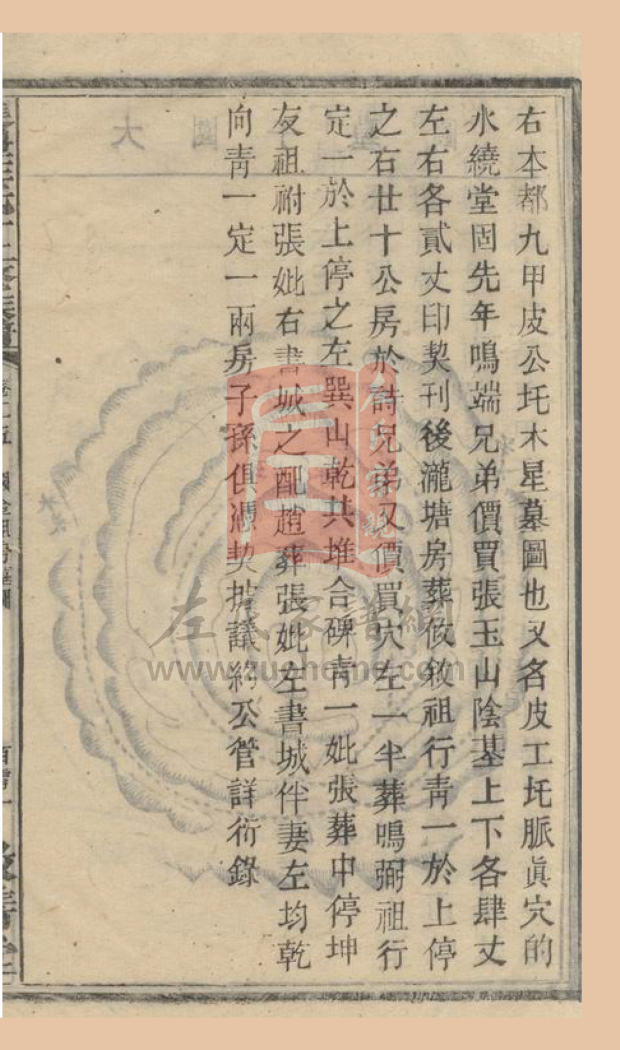 右本都九甲皮公圫木星墓圖也又名皮工圫脈眞穴的
水繞堂固先年鳴端兄弟價買張玉山陰基上下各肆丈
左右各貳丈印契刊後瀧塘房葬攸敘祖行靑一於上停
之右廿十公房於詩兄弟又價買穴左一半葬鳴弼祖行
定一於上停之左巽山乾共堆合碑靑一妣張葬中停坤
友祖祔張妣右書城之配趙葬張妣左書城伴妻左均乾
向靑一定一兩房子孫俱憑契據議約公管詳衍錄
大
國
左氏家譜網
www.zuohome.com